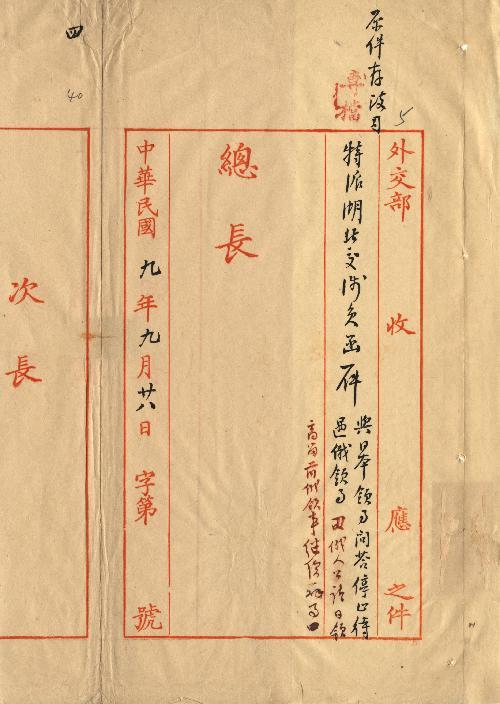 原件存政司
5
專檔
外交部 收 應 之件
特派湖北交涉員函一件
與日本領事問答停止待
遇俄領事 又俄人日領
前俄領事
總長
中華民國九年九月廿八日 字第 號
四
40
次長